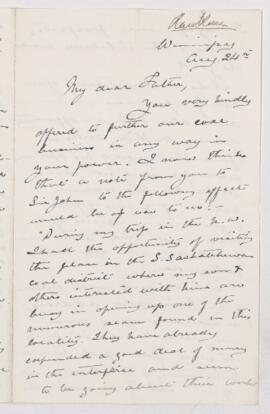 Winnipeg
Aug. 24th
My dear Father,
You very kindly
offered to further our coal
business in any way in
your power. I now think
that a note from you to
Sir John to the following effect
would be of use to us:—
"During my trip in the N.W.
I had the opportunity of visiting
the place in the S. Saskatchewan
coal district where my son &
others interested with him are
busy in opening up one of the
numerous seams found in this
locality. They have already
expended a good deal of money
in the interprise and seem
to be going about their work